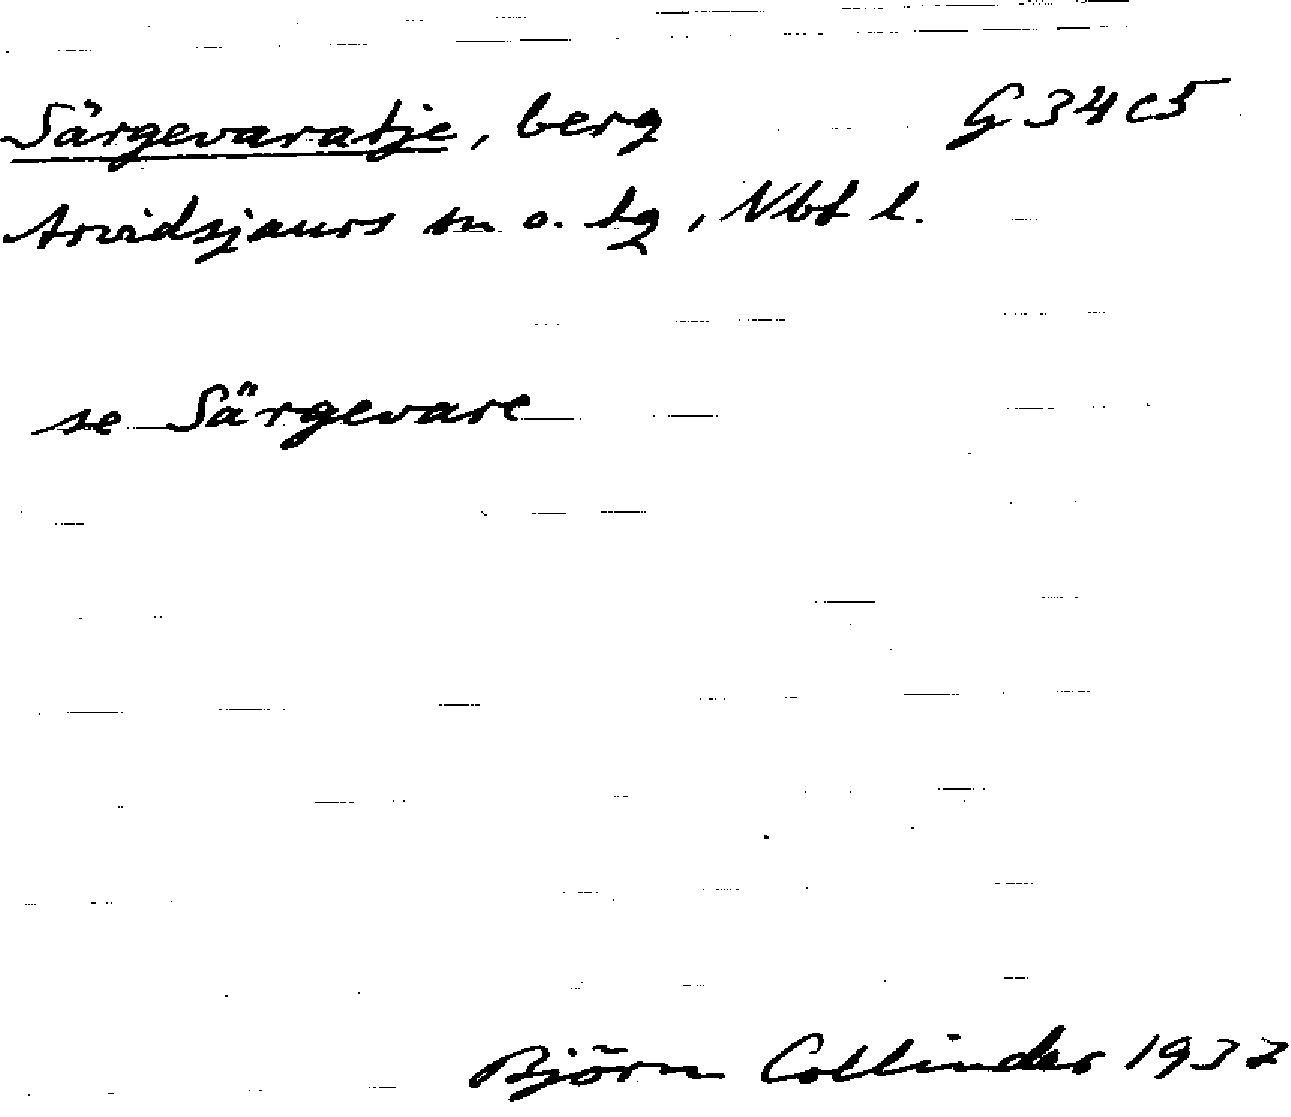 Särgevaratje, berg G 34 c5
Arvidsjaurs sn o. tg, Nbt l.
se Särgevare
Björn Collinder 1937